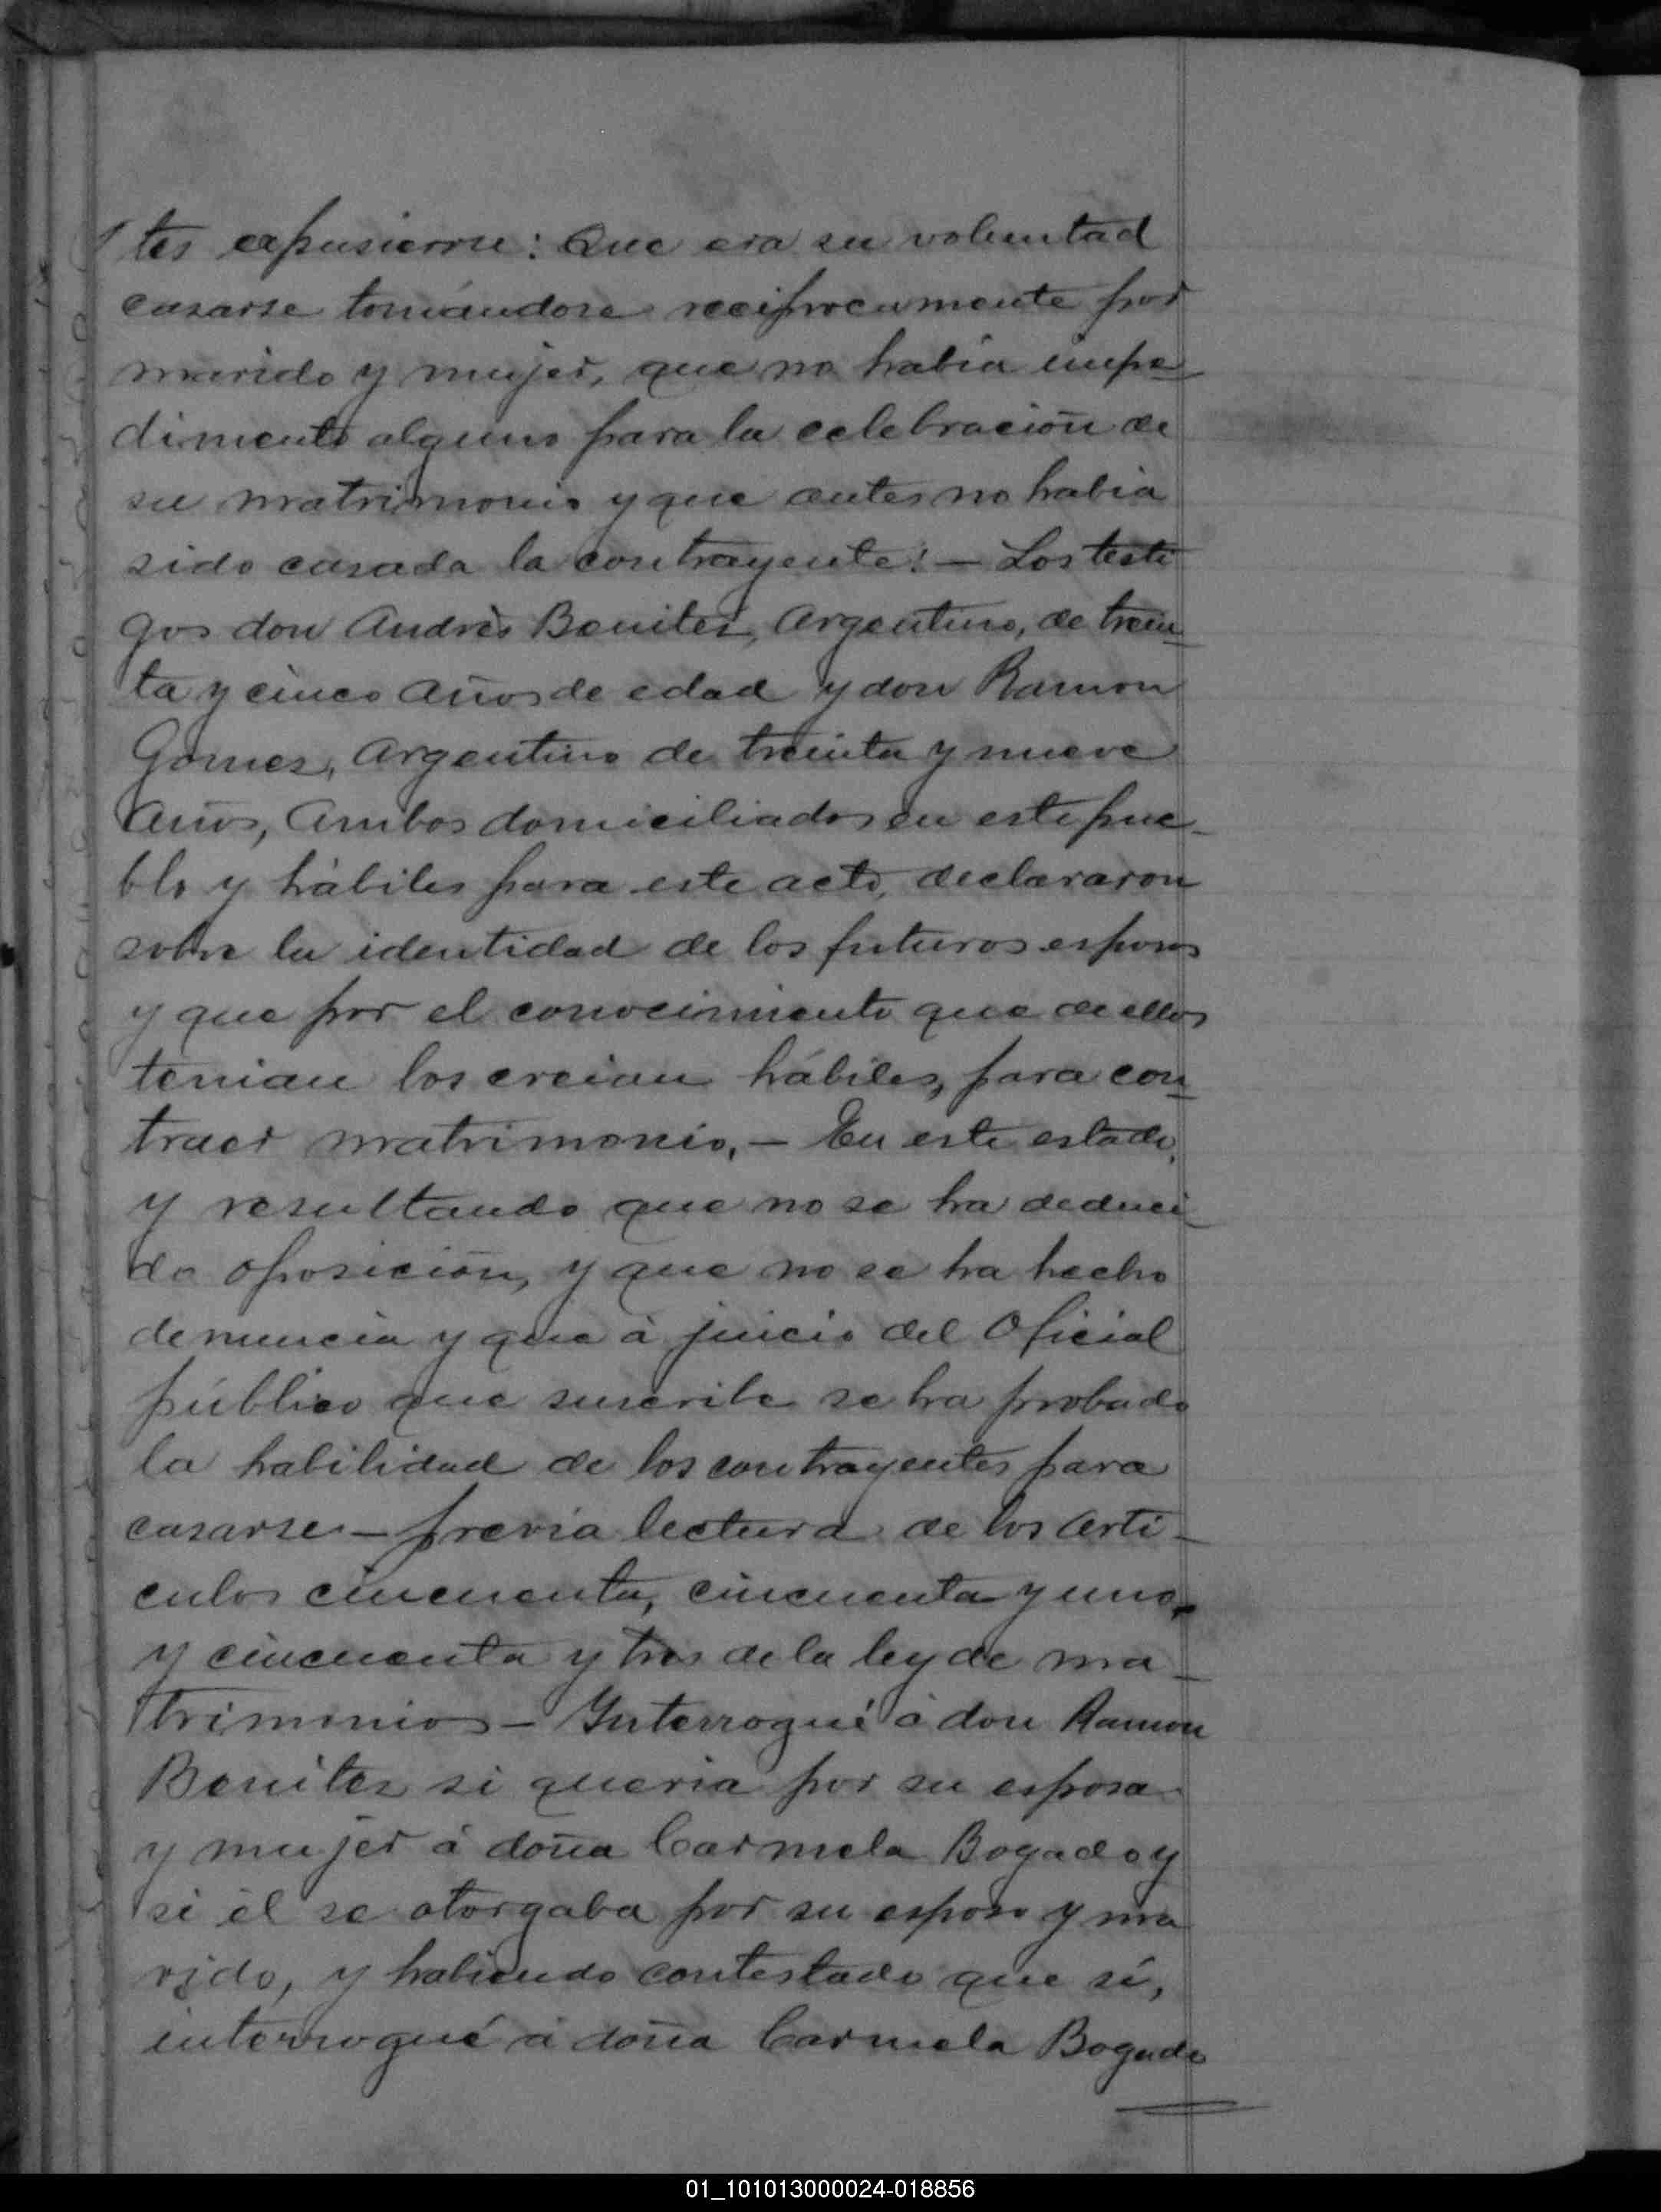 tes expusieron: Que era su voluntad
casarse tomándose reciprocamente por
marido y mujer, que no habia impe-
dimento alguno para la celebración de
su matrimonio y que antes no habia
sido casada la contrayente:— Los testi
gos don Andrès Benitez, Argentino, de trein-
ta y cinco años de edad y don Ramon
Gomez, Argentino de treinta y nueve
años, ambos domiciliados en este pue-
blo y hàbiles para este acto, declararon
sobre la identidad de los futuros esposos
y que por el conocimiento que de ellos
tenian los creian hábiles, para con-
traer matrimonio.— En este estado,
y resultando que no se ha deduci-
do oposición, y que no se ha hecho
denuncia y que à juicio del Oficial
público que suscribe se ha probado
la habilidad de los contrayentes para
casarse.— previa lectura de los arti-
culos cincuenta, cincuenta y uno,
y cincuenta y tres de la ley de ma-
trimonios— Interrogué à don Ramon
Benitez si queria por su esposa
y mujer á doña Carmela Bogado y
si él se otorgaba por su esposo y ma
rido, y habiendo contestado que sí,
interrogué à doña Carmela Bogado
01_101013000024-018856